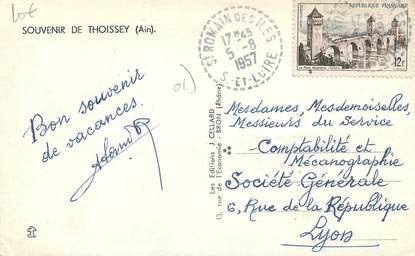 lot
SOUVENIR DE THOISSEY (Ain).
St ROMAIN DES ILES
17H45
5-8
1957
S. ET LOIRE
REPUBLIQUE FRANÇAISE
12F
01)
Bon souvenir
de vacances.
Les Editions J. CELLARD
13, rue de l'Economie - BRON (Rhône)
Mesdames, Mesdemoiselles,
Messieurs du Service
Comptabilité et
Mécanographie
Société Générale
6, Rue de la République
Lyon